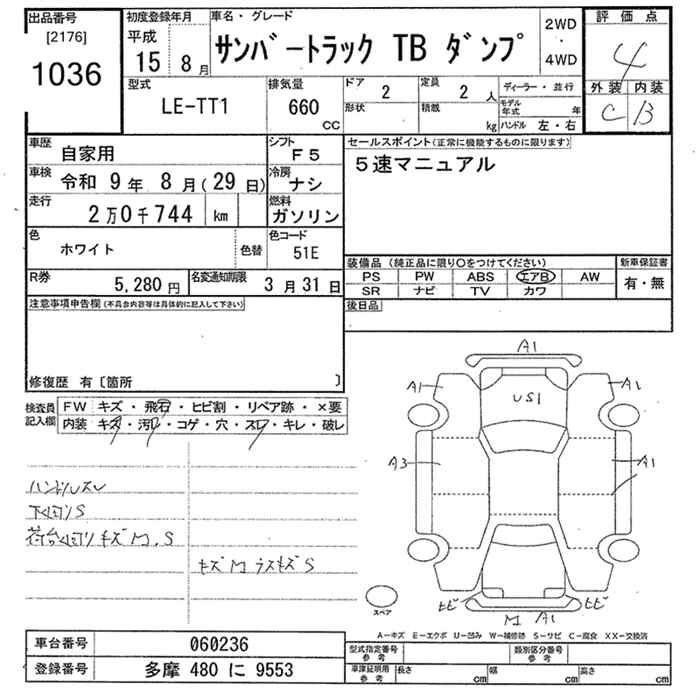 出品番号
[2176]
1036
初度登録年月
平成
15 8月
車名・グレード
サンバートラック TB ダンプ
2WD
・
4WD
評価点
4
外装 内装
C B
型式
LE-TT1
排気量
660
CC
ドア
2
形状
定員
2 人
積載
kg
ディーラー・並行
モデル年式
年
ハンドル 左・右
車歴
自家用
シフト
F5
車検
令和 9年 8月(29日)
冷房
ナシ
走行
2万0千744 km
燃料
ガソリン
色
ホワイト
色替
色コード
51E
R券
5,280円
名変通知期限
3月31日
セールスポイント(正常に機能するものに限ります)
5速マニュアル
装備品(純正品に限り○をつけてください)
PS PW ABS エアB AW
SR ナビ TV カワ
新車保証書
有・無
後日品
注意事項申告欄(不具合内容等は具体的に記入して下さい)
修復歴 有〔箇所 〕
検査員記入欄
FW キズ・飛石・ヒビ割・リペア跡・×要
内装 キズ・汚レ・コゲ・穴・スレ・キレ・破レ
ハンドルスレ
下廻りS
荷台廻りキズM.S
キズM ラスキズS
A1
A1
A1
US1
A3
A1
ヒビ
ヒビ
M A1
スペア
A－キズ E－エクボ U－凹み W－補修跡 S－サビ C－腐食 XX－交換済
車台番号
060236
登録番号
多摩 480 に 9553
型式指定番号
参考
類別区分番号
参考
車庫証明用
参考
長さ cm
幅 cm
高さ cm